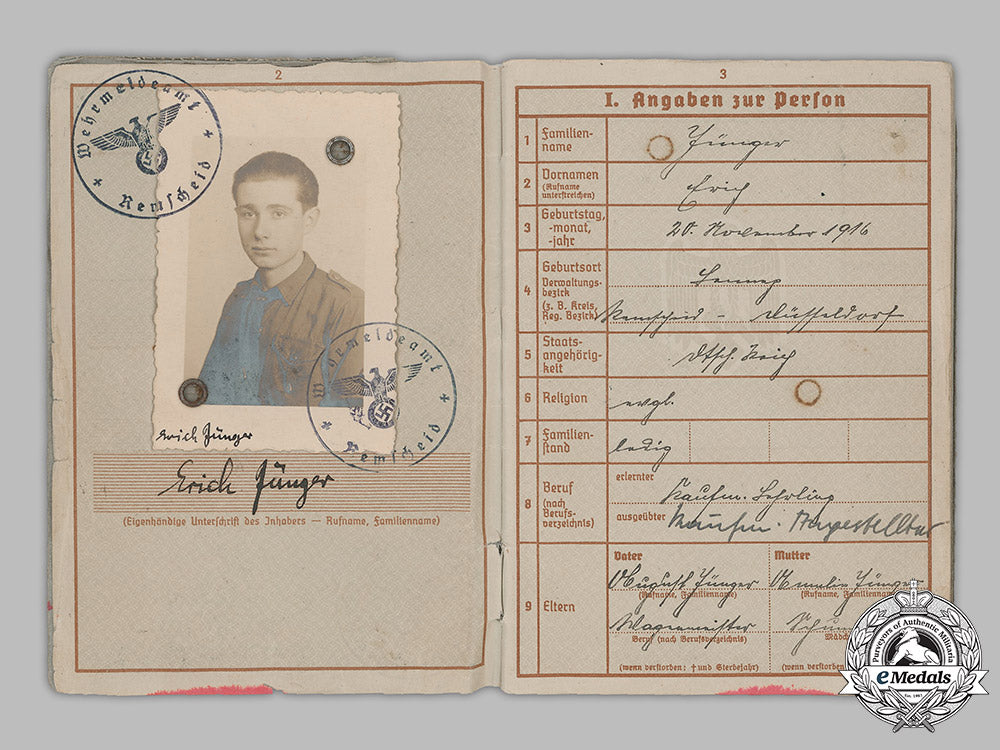 2
Wehrmeldeamt
Remscheid
Wehrmeldeamt
Remscheid
Erich Jünger
Erich Jünger
(Eigenhändige Unterschrift des Inhabers — Rufname, Familienname)
3
I. Angaben zur Person
1 Familien-
name
Jünger
2 Vornamen
(Rufname
unterstreichen)
Erich
3 Geburtstag,
-monat,
-jahr
20. November 1916
4 Geburtsort
Verwaltungs-
bezirk
(z. B. Kreis,
Reg. Bezirk)
Lennep
Remscheid – Düsseldorf
5 Staats-
angehörig-
keit
Dtsch. Reich
6 Religion
evgl.
7 Familien-
stand
ledig
8 Beruf
(nach
Berufs-
verzeichnis)
erlernter
Kaufm. Lehrling
ausgeübter
Kaufm. Angestellter
9 Eltern
Vater
August Jünger
(Rufname, Familienname)
Wagenmeister
Beruf (nach Berufsverzeichnis)
(wenn verstorben: † und Sterbejahr)
Mutter
Amalie Jünger
(Rufname, Familienname)
(wenn verstorben
Purveyors of Authentic Militaria
eMedals